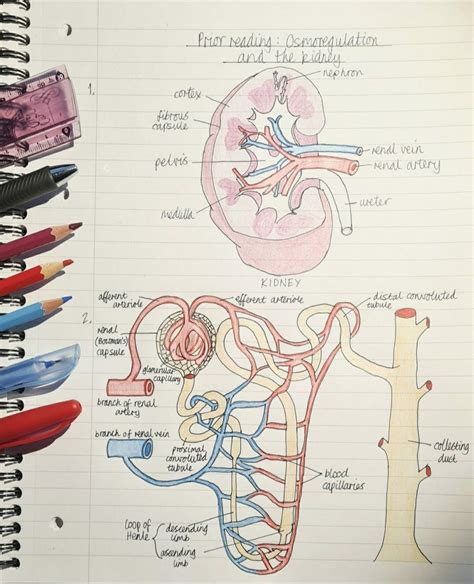 Prior reading: Osmoregulation
and the kidney
1.
nephron
cortex
fibrous
capsule
renal vein
pelvis
renal artery
ureter
medulla
KIDNEY
afferent
arteriole
efferent arteriole
distal convoluted
tubule
2.
renal
(Bowman's)
capsule
glomerular
capillary
branch of renal
artery
branch of renal vein
proximal
convoluted
tubule
collecting
duct
blood
capillaries
Loop of
Henle
descending
limb
ascending
limb